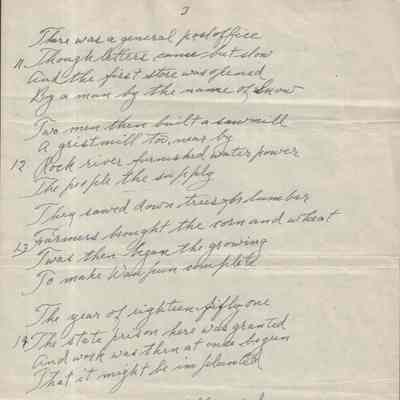 3
There was a general postoffice
11. Though letters came but slow
And the first store was opened
By a man by the name of Snow
Two men then built a sawmill
A gristmill too, near by
12 Rock river furnished water power
The people the supply
They sawed down trees for lumber
13 Farmers brought the corn and wheat
Twas then began the growing
To make Waupun complete
The year of eighteen fifty one
14 The state prison here was granted
And work was then at once begun
That it might be implanted